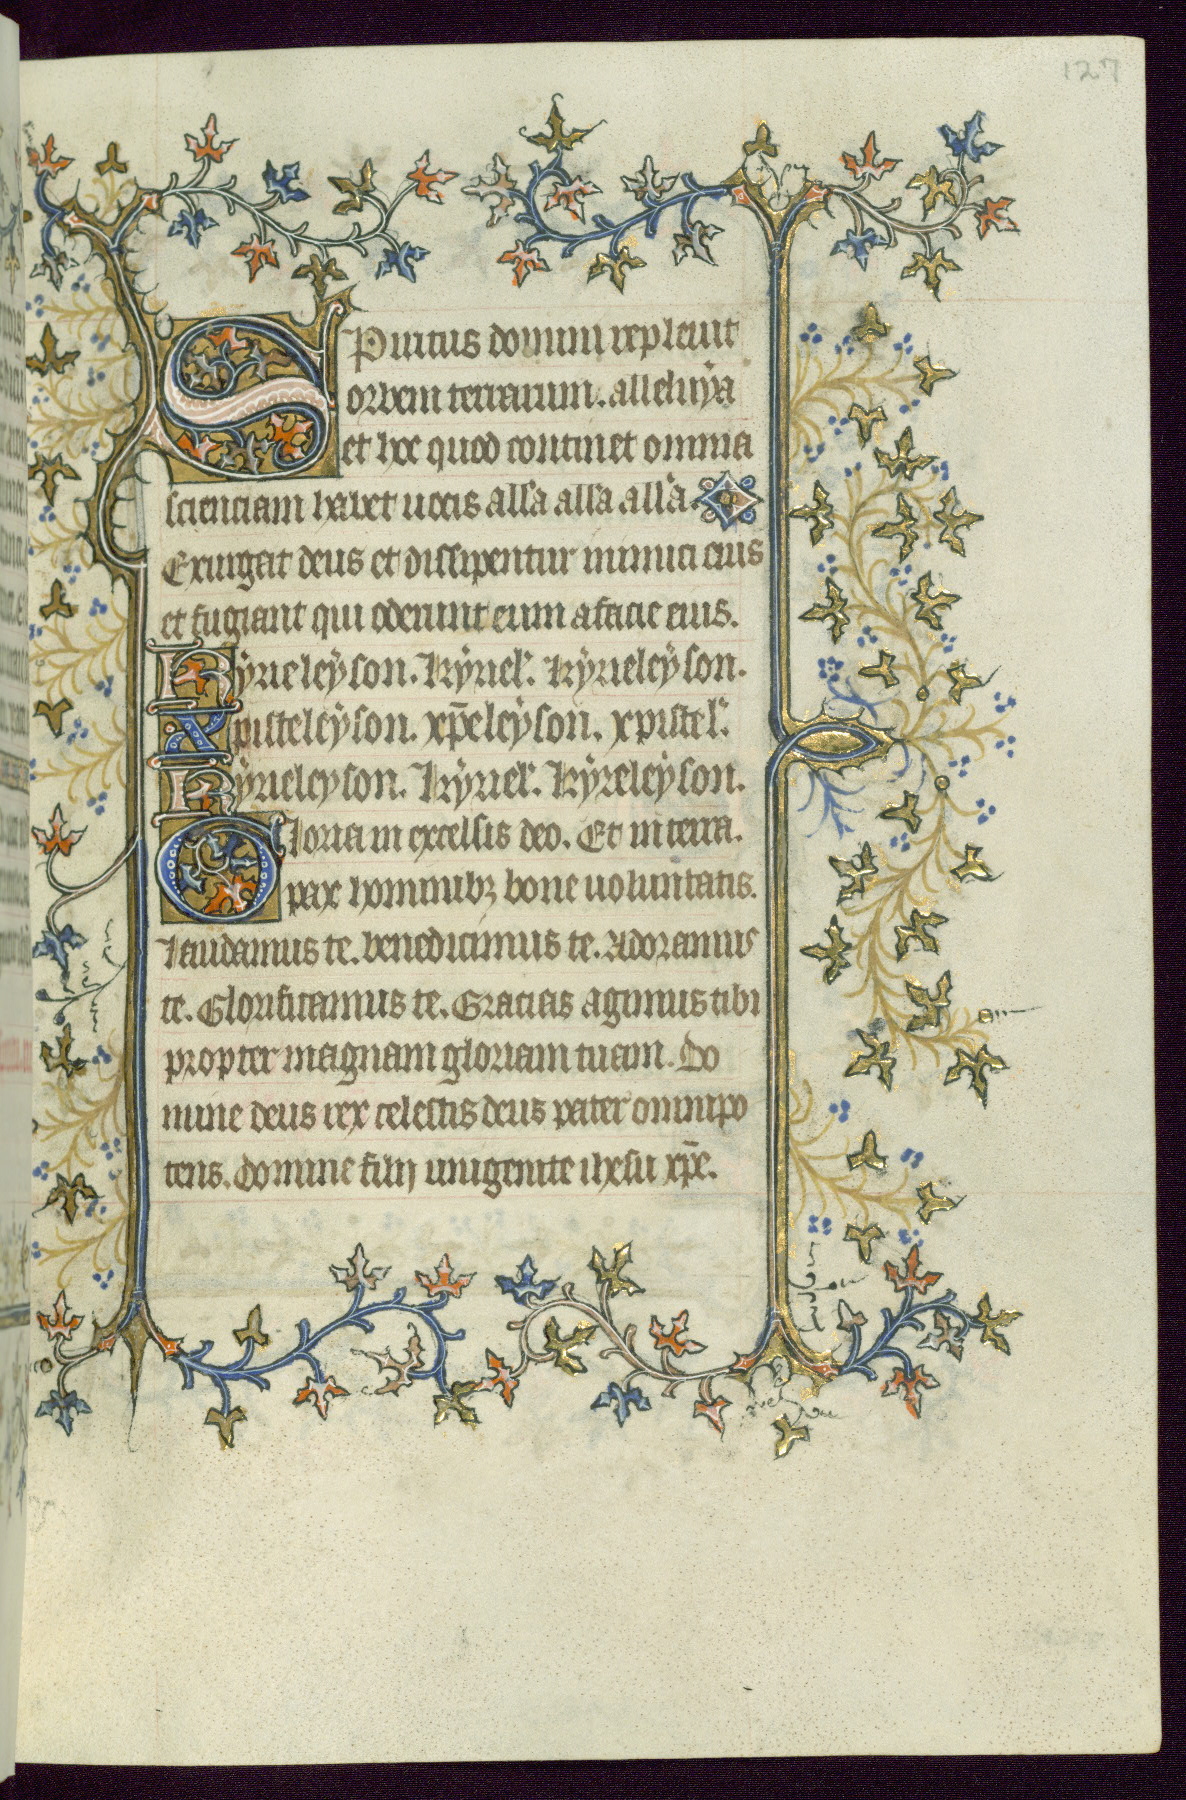 127
Spiritus domini repleuit
orbem terrarum. alleluÿa
et hoc quod continet omnia
scienciam habet uocis alľa alľa alľa.
Exurgat deus et dissipentur inimici eius
et fugiant qui oderunt eum a facie eius.
Kÿrieleÿson. Kÿriel'. Kÿrieleÿson.
Xpisteleÿson. xp̄eleÿson. xpistel'.
Kÿrieleyson. Kÿriel'. Kÿreleÿson.
Gloria in excelsis deo. Et in terra.
pax hominibꝫ bone uoluntatis.
Laudamus te. benedicimus te. Adoramus
te. Glorificamus te. Gracias agimus tibi
propter magnam gloriam tuam. Do
mine deus rex celestis deus pater omnipo
tens. Domine filij unigenite ihesu xp̄e.